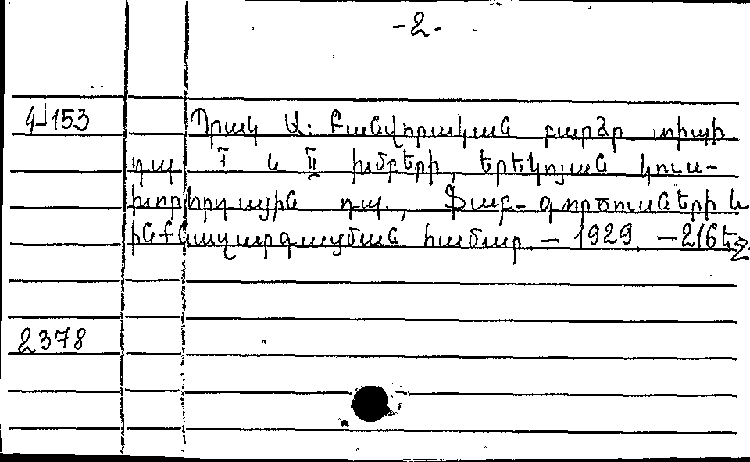 -2-
Վ-153 Պրակ Ա: Բանվորական բարձր տիպի
դպ. I և II խմբերի, երեկոյան կուս-
խորհրդային դպ., ֆաբ-գործուաների և
ինքնազարգացման համար. – 1929. – 216 եջ
2378